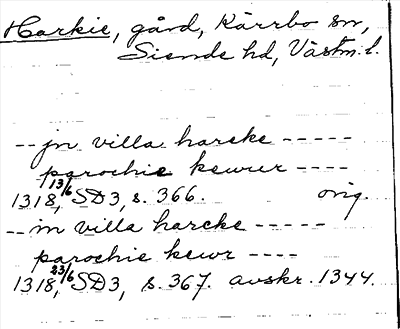 Harkie, gård, Kärrbo sn,
Siende hd, Västm. l.
-- jn villa harcke -----
parochie kewrer ----
1318, 13/6 SD3, s. 366. orig.
-- in villa harcke -----
parochie kewr ----
1318, 23/6 SD3, s. 367. avskr. 1344.